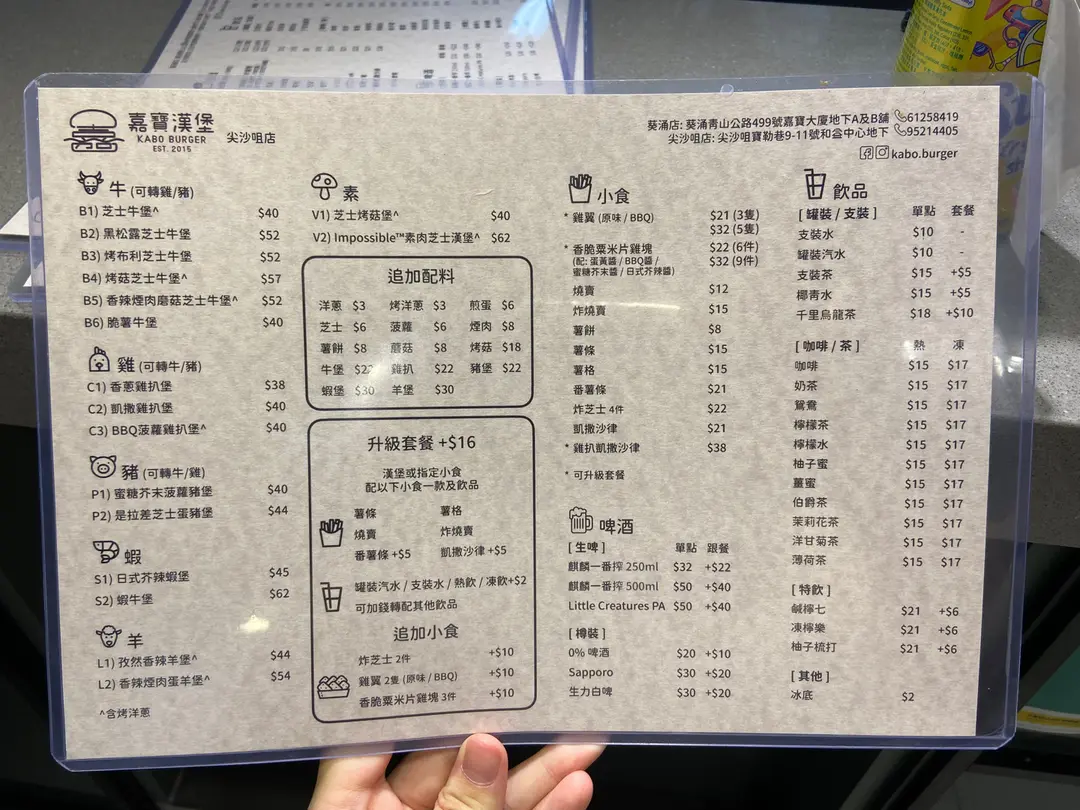 嘉寶漢堡
KABO BURGER
EST. 2015
尖沙咀店
葵涌店: 葵涌青山公路499號嘉寶大廈地下A及B舖 61258419
尖沙咀店: 尖沙咀寶勒巷9-11號和益中心地下 95214405
kabo.burger
牛 (可轉雞/豬)
B1) 芝士牛堡^ $40
B2) 黑松露芝士牛堡 $52
B3) 烤布利芝士牛堡 $52
B4) 烤菇芝士牛堡^ $57
B5) 香辣煙肉磨菇芝士牛堡^ $52
B6) 脆薯牛堡 $40
雞 (可轉牛/豬)
C1) 香蔥雞扒堡 $38
C2) 凱撒雞扒堡 $40
C3) BBQ菠蘿雞扒堡^ $40
豬 (可轉牛/雞)
P1) 蜜糖芥末菠蘿豬堡 $40
P2) 是拉差芝士蛋豬堡 $44
蝦
S1) 日式芥辣蝦堡 $45
S2) 蝦牛堡 $62
羊
L1) 孜然香辣羊堡^ $44
L2) 香辣煙肉蛋羊堡^ $54
^含烤洋蔥
素
V1) 芝士烤菇堡^ $40
V2) Impossible™素肉芝士漢堡^ $62
追加配料
洋蔥 $3 烤洋蔥 $3 煎蛋 $6
芝士 $6 菠蘿 $6 煙肉 $8
薯餅 $8 蘑菇 $8 烤菇 $18
牛堡 $22 雞扒 $22 豬堡 $22
蝦堡 $30 羊堡 $30
升級套餐 +$16
漢堡或指定小食
配以下小食一款及飲品
薯條 薯格
燒賣 炸燒賣
番薯條 +$5 凱撒沙律 +$5
罐裝汽水 / 支裝水 / 熱飲 / 凍飲+$2
可加錢轉配其他飲品
追加小食
炸芝士 2件 +$10
雞翼 2隻 (原味 / BBQ) +$10
香脆粟米片雞塊 3件 +$10
小食
* 雞翼 (原味 / BBQ) $21 (3隻)
$32 (5隻)
* 香脆粟米片雞塊 $22 (6件)
(配: 蛋黃醬 / BBQ醬 / $32 (9件)
蜜糖芥末醬 / 日式芥辣醬)
燒賣 $12
炸燒賣 $15
薯餅 $8
薯條 $15
薯格 $15
番薯條 $21
炸芝士 4件 $22
凱撒沙律 $21
* 雞扒凱撒沙律 $38
* 可升級套餐
啤酒
[ 生啤 ] 單點 跟餐
麒麟一番搾 250ml $32 +$22
麒麟一番搾 500ml $50 +$40
Little Creatures PA $50 +$40
[ 樽裝 ]
0% 啤酒 $20 +$10
Sapporo $30 +$20
生力白啤 $30 +$20
飲品
[ 罐裝 / 支裝 ] 單點 套餐
支裝水 $10 -
罐裝汽水 $10 -
支裝茶 $15 +$5
椰青水 $15 +$5
千里烏龍茶 $18 +$10
[ 咖啡 / 茶 ] 熱 凍
咖啡 $15 $17
奶茶 $15 $17
鴛鴦 $15 $17
檸檬茶 $15 $17
檸檬水 $15 $17
柚子蜜 $15 $17
薑蜜 $15 $17
伯爵茶 $15 $17
茉莉花茶 $15 $17
洋甘菊茶 $15 $17
薄荷茶 $15 $17
[ 特飲 ]
鹹檸七 $21 +$6
凍檸樂 $21 +$6
柚子梳打 $21 +$6
[ 其他 ]
冰底 $2